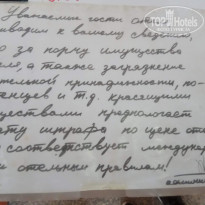 TopHotels
Уважаемые гости
водим к вашему сведению,
о за порчу имущества
а также загрязнение
тельной принадлежности, по-
тенцев и т.д. красящими
ществами предполагает
ату штрафа по цене оте
соответствует междунар
отельным правилам!